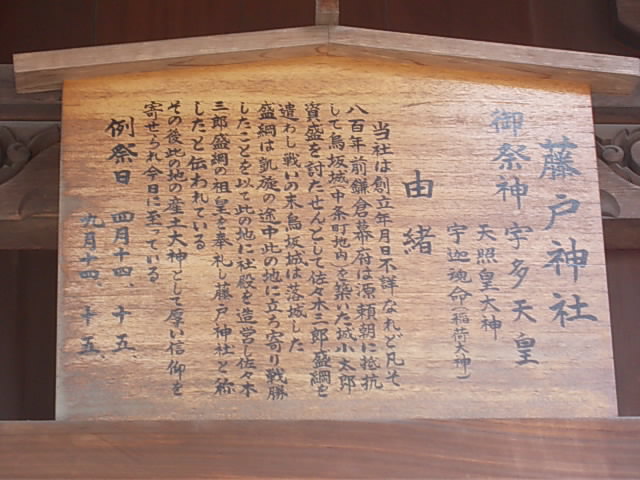 藤戸神社
御祭神 宇多天皇
天照皇大神
宇迦魂命(稲荷大神)
由緒
当社は創立年月日不詳なれど凡そ
八百年前鎌倉幕府は源頼朝に抵抗
して鳥坂城中条町地内を築いた城小太郎
資盛を討たせんとして佐々木三郎盛綱を
遣わし戦いの末鳥坂城は落城した
盛綱は凱旋の途中此の地に立ち寄り戦勝
したことを以て此の地に社殿を造営し佐々木
三郎盛綱の祖皇を奉札し藤戸神社と称
したと伝われている
その後此の地の産土大神として厚い信仰を
寄せられ今日に至っている
例祭日 四月十四、十五、
九月十四、十五、